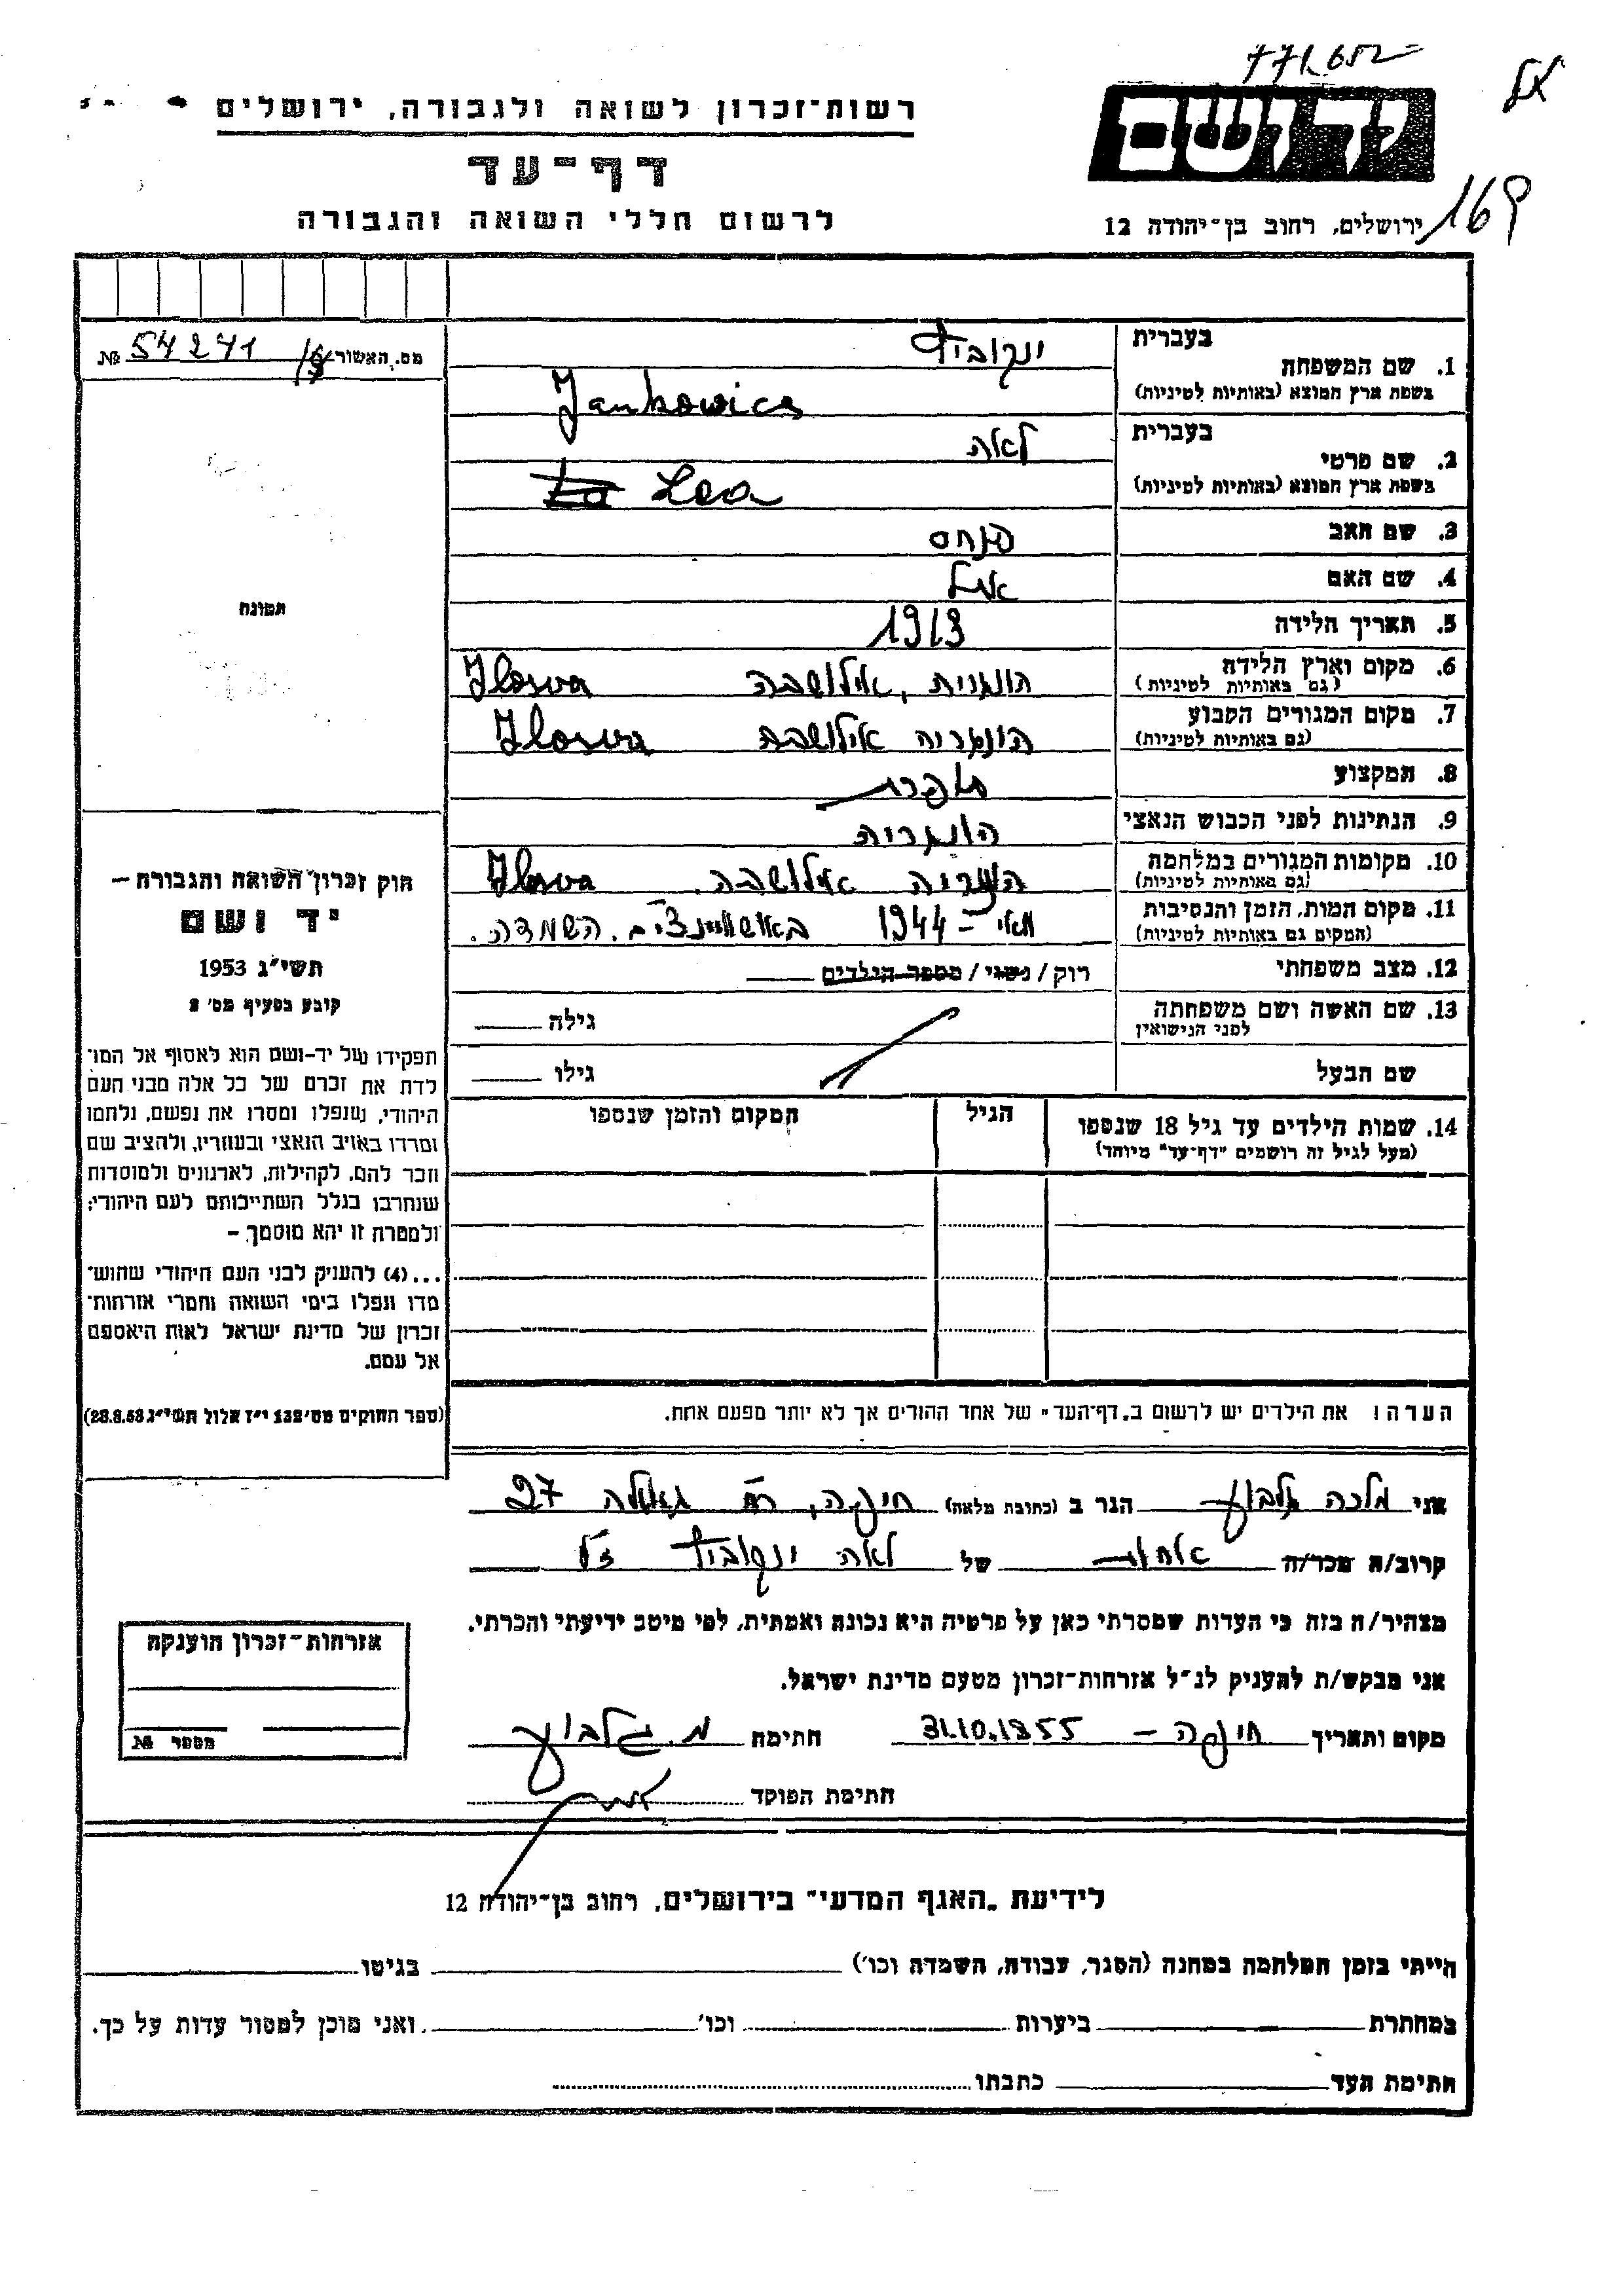 771,652
אל
רשות־זכרון לשואה ולגבורה, ירושלים
יד ושם
דף־עד
169
לרשום חללי השואה והגבורה
ירושלים, רחוב בן־יהודה 12
מס. האשור 54271 №
בעברית ינקוביץ
1. שם המשפחה
בשפת ארץ המוצא (באותיות לטיניות) Jankowics
בעברית לאה
2. שם פרטי
בשפת ארץ המוצא (באותיות לטיניות) Lea
3. שם האב פנחס
4. שם האם
5. תאריך הלידה 1913
6. מקום וארץ הלידה הונגריה, אילושבה Ilosva
(גם באותיות לטיניות)
7. מקום המגורים הקבוע הונגריה אילושבה Ilosva
(גם באותיות לטיניות)
8. המקצוע תופרת
9. הנתינות לפני הכבוש הנאצי הונגריה
10. מקומות המגורים במלחמה הונגריה אילושבה. Ilosva
(גם באותיות לטיניות)
11. מקום המות, הזמן והנסיבות מאי – 1944 באושויינצ'ים. השמדה.
(המקום גם באותיות לטיניות)
12. מצב משפחתי רוק / נשוי / מספר הילדים
13. שם האשה ושם משפחתה גילה
לפני הנישואין
שם הבעל גילו
14. שמות הילדים עד גיל 18 שנספו הגיל המקום והזמן שנספו
(מעל לגיל זה רושמים "דף־עד" מיוחד)
הערה: את הילדים יש לרשום ב„דף־העד" של אחד ההורים אך לא יותר מפעם אחת.
תמונה
חוק זכרון השואה והגבורה —
יד ושם
תשי"ג 1953
קובע בסעיף מס' 2
תפקידו של יד–ושם הוא לאסוף אל המו־
לדת את זכרם של כל אלה מבני העם
היהודי, שנפלו ומסרו את נפשם, נלחמו
ומרדו באויב הנאצי ובעוזריו, ולהציב שם
וזכר להם, לקהילות, לארגונים ולמוסדות
שנחרבו בגלל השתייכותם לעם היהודי;
ולמטרה זו יהא מוסמך –
...(4) להעניק לבני העם היהודי שהוש־
מדו ונפלו בימי השואה והמרי אזרחות־
זכרון של מדינת ישראל לאות היאספם
אל עמם.
(ספר החוקים מס' 132 י"ז אלול תשי"ג 28.8.53)
אני מלכה גלבוע הגר ב (כתובת מלאה) חיפה, רח' גאולה 27
קרוב/ה מכר/ה אחות של לאה ינקוביץ ז"ל
מצהיר/ה בזה כי העדות שמסרתי כאן על פרטיה היא נכונה ואמתית, לפי מיטב ידיעתי והכרתי.
אני מבקש/ת להעניק לנ"ל אזרחות־זכרון מטעם מדינת ישראל.
מקום ותאריך חיפה – 31.10.1955 חתימה מ. גלבוע
חתימת הפוקד
אזרחות־זכרון הוענקה
מספר №
לידיעת „האגף המדעי" בירושלים, רחוב בן־יהודה 12
הייתי בזמן המלחמה במחנה (הסגר, עבודה, השמדה וכו') בגיטו
במחתרת ביערות וכו' ואני מוכן למסור עדות על כך.
חתימת העד כתבתו